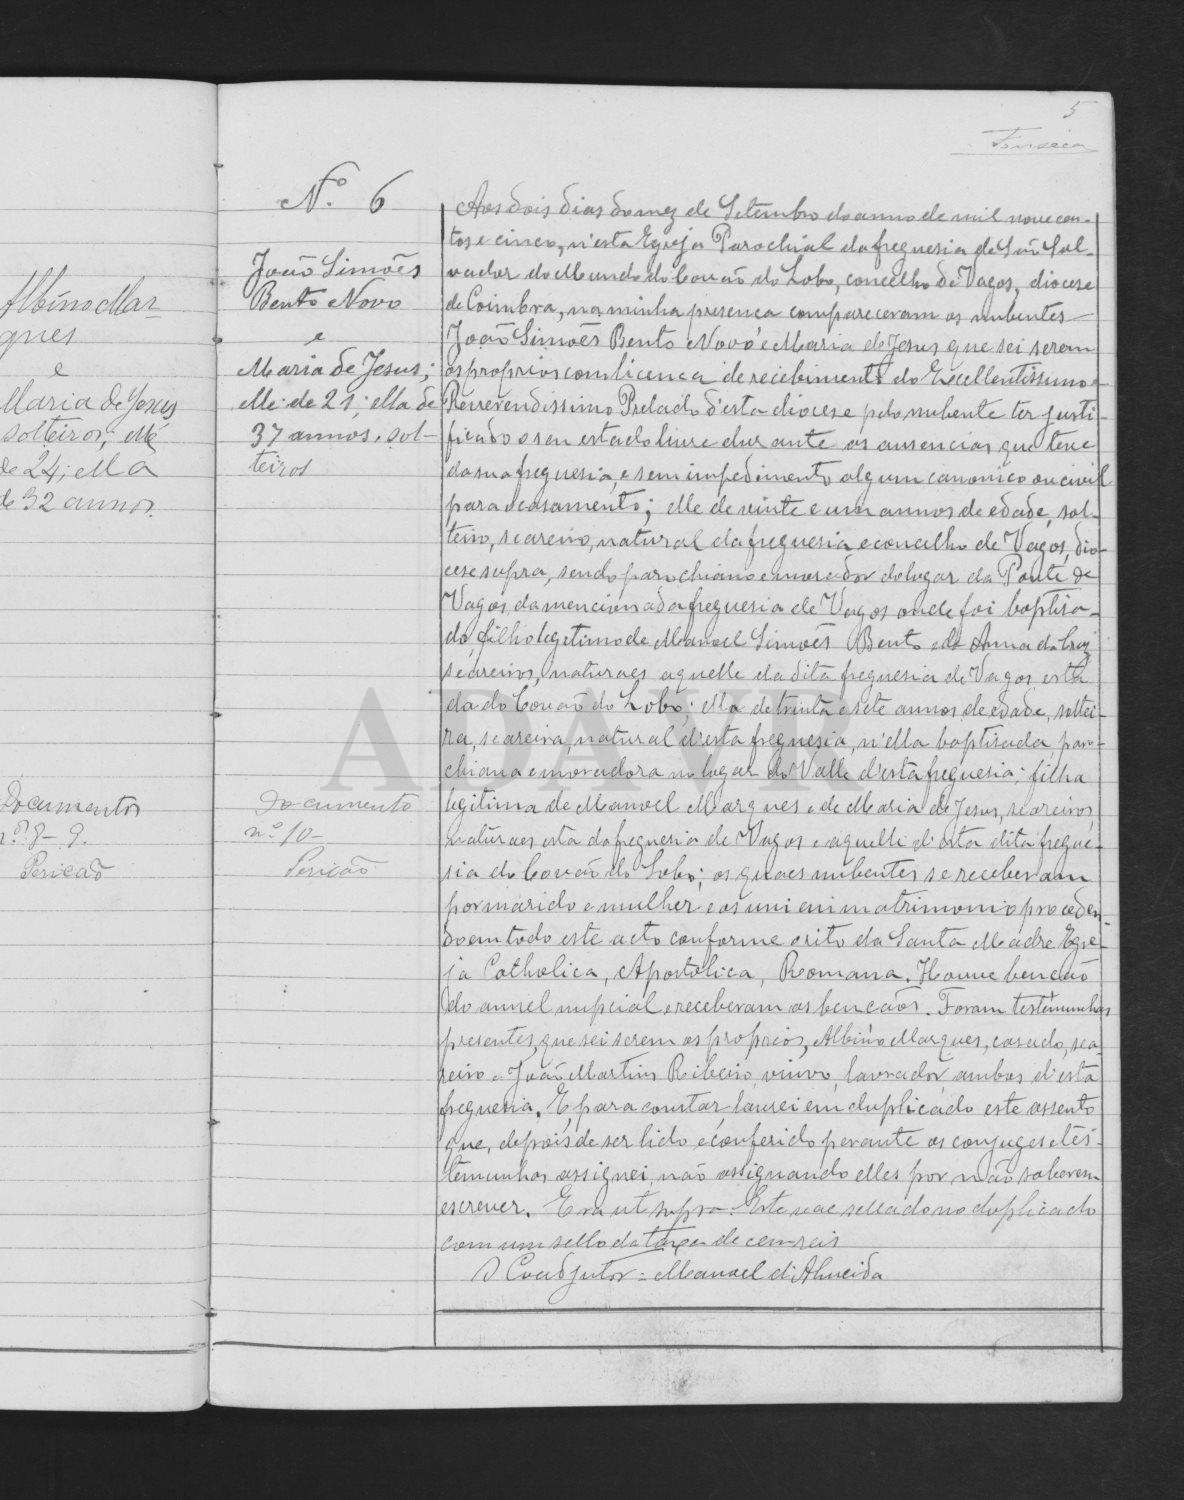 5
Fonseca
Albino Mar-
ques
e
Maria de Jesus,
solteiros; elle
de 24; ella
de 32 annos.
Documentos
nos 8 - 9.
Petição
N.º 6
João Simões
Bento Novo
e
Maria de Jesus;
elle de 21; ella de
37 annos, sol-
teiros
Documento
n.º 10-
Petição
Aos dois dias do mez de Setembro do anno de mil novecen-
tos e cinco, n'esta Egreja Parochial da freguesia de São Sal-
vador do Mundo do Covão do Lobo, concelho de Vagos, diocese
de Coimbra, na minha presença compareceram os nubentes
João Simões Bento Novo e Maria de Jesus que sei serem
os proprios com licença de recebimento do Excellentissimo e
Reverendissimo Prelado d'esta diocese pelo nubente ter justi-
ficado o seu estado livre durante as ausencias que teve
da sua freguesia, e sem impedimento algum canonico ou civil
para o casamento; elle de vinte e um annos de edade, sol-
teiro, seareiro, natural da freguesia e concelho de Vagos, dio-
cese supra, sendo parochiano e morador do lugar da Ponte de
Vagos, da mencionada freguesia de Vagos onde foi baptisa-
do, filho legitimo de Manoel Simões Bento e de Anna da Cruz
seareiros, naturaes aquelle da dita freguesia de Vagos, esta
da do Covão do Lobo; ella de trinta e sete annos de edade, soltei-
ra, seareira, natural d'esta freguesia, n'ella baptisada, paro-
chiana e moradora no logar do Valle d'esta freguesia; filha
legitima de Manoel Marques e de Maria de Jesus, seareiros,
naturaes esta da freguesia de Vagos e aquelle d'esta dita fregue-
sia do Covão do Lobo; os quaes nubentes se receberam
por marido e mulher e os uni em matrimonio proceden-
do em todo este acto conforme o rito da Santa Madre Egre-
ja Catholica, Apostolica, Romana. Houve benção
do annel nupcial e receberam as bençãos. Foram testemunhas
presentes, que sei serem os proprios, Albino Marques, casado, sea-
reiro e João Martins Ribeiro, viuvo, lavrador, ambos d'esta
freguesia. E para constar lavrei em duplicado este assento
que, depois de ser lido e conferido perante os conjuges e tes-
temunhas assignei, não assignando elles por não saberem
escrever. Era ut supra. Este vae sellado no duplicado
com um sello da taxa de cem reis
O Coadjutor = Manoel d'Almeida
ADAVR